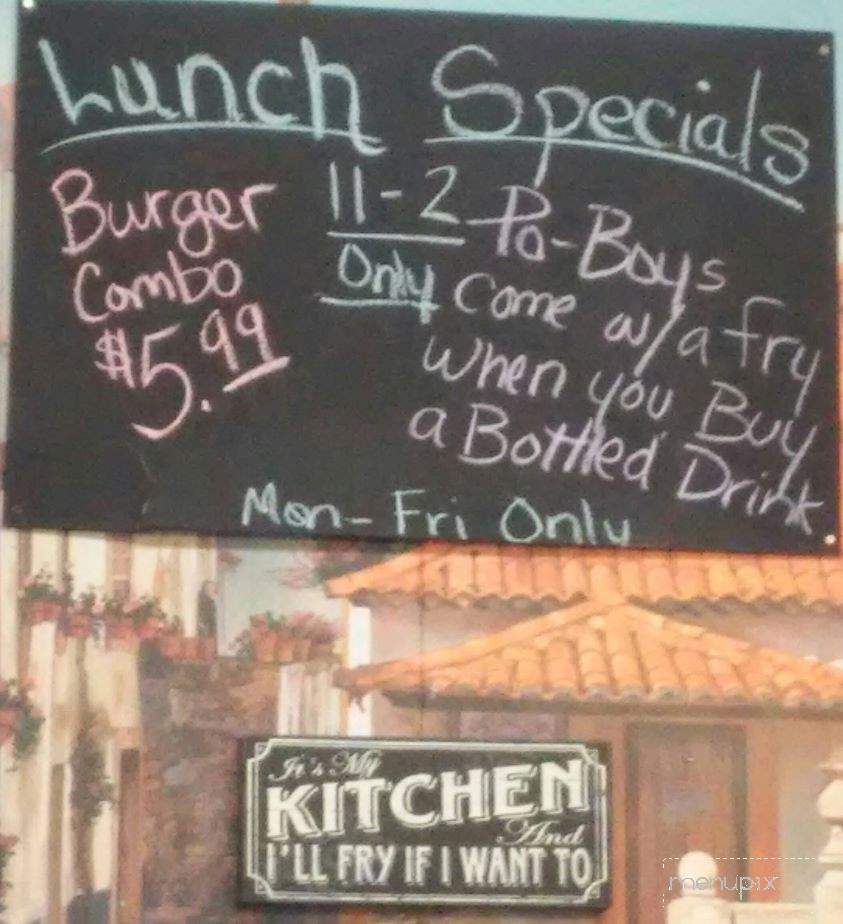 Lunch Specials
Burger
Combo
$5.99
11-2
Only
Po-Boys
come w/a fry
when you Buy
a Bottled Drink
Mon-Fri Only
It's My
KITCHEN
And
I'LL FRY IF I WANT TO
menupix